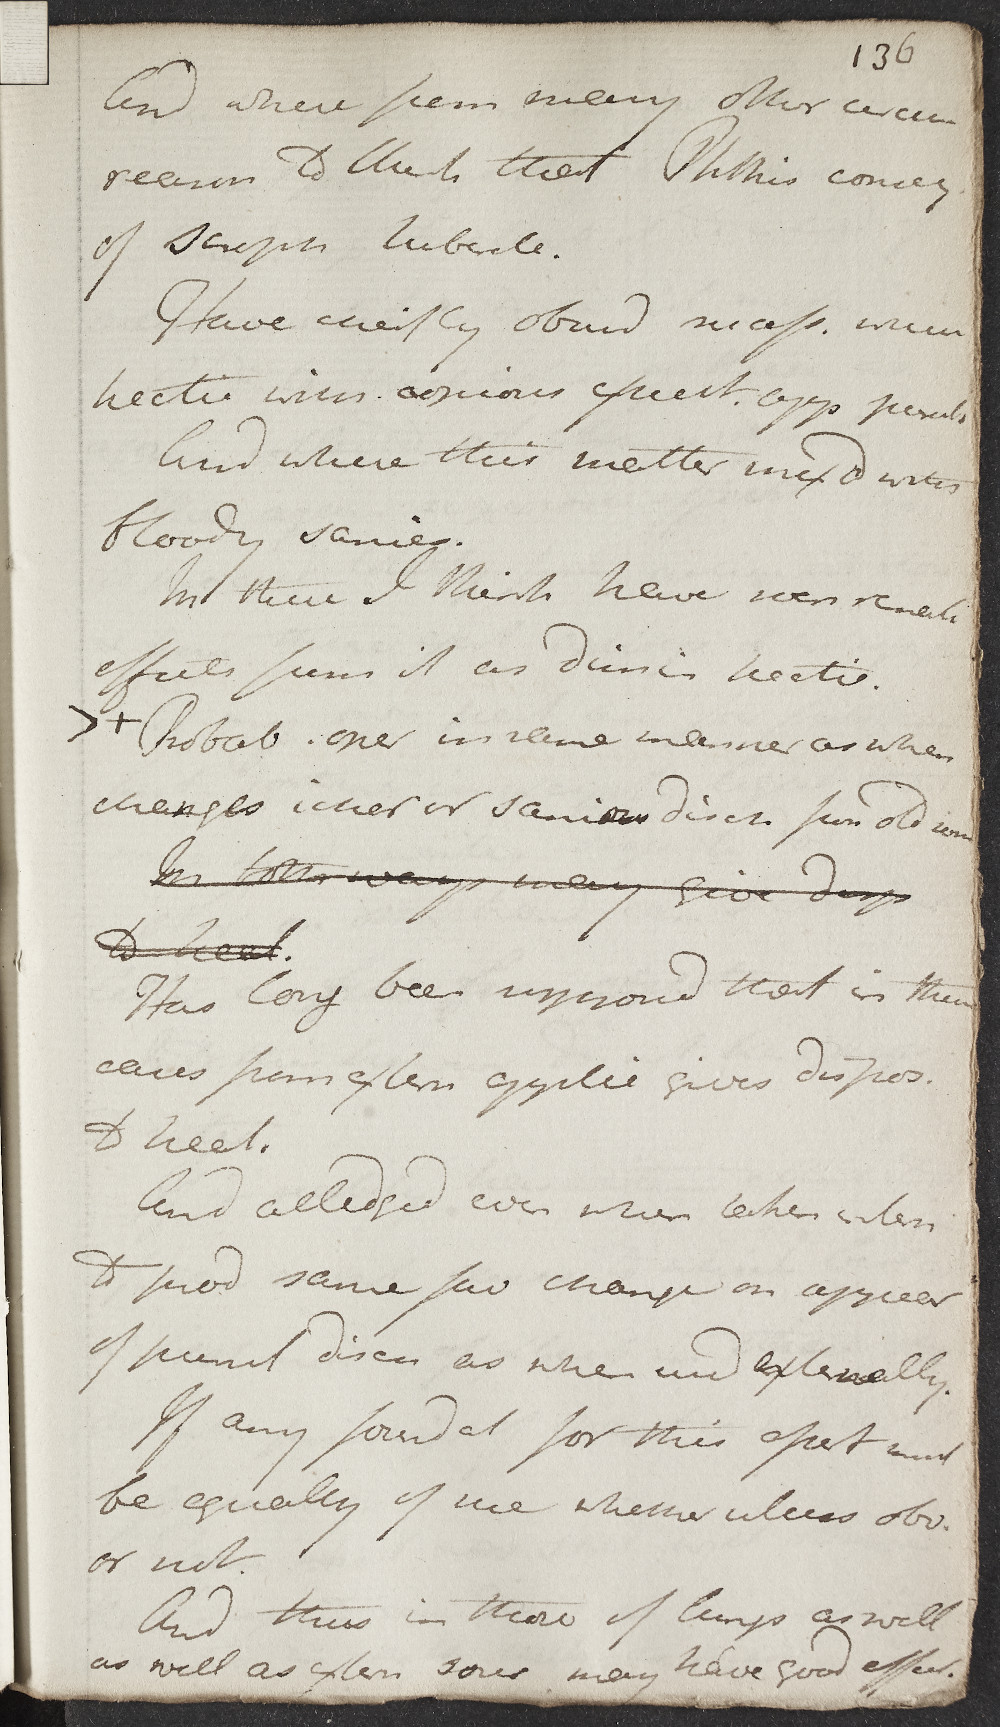 136
And where from many other circum
reason to think that Phthis conseq
of scroph tubercle.
Have cheifly obsevd necess. when
hectic with copious expect. app purul
And where this matter mixd with
bloody sanies.
In these I think have seen remark
effects from it as dimin hectic.
>+ Probab. oper in same manner as when
changes ichor or sanious disch from old
In both ways may give disp
to heal.
Has long been supposd that in these
cases from extern applic gives dispos.
to heal.
And alledged even when taken intern
to prod same fav change on appear
of purul disch as when usd externally.
If any foundat for this effect must
be equally of use whether ulcers obv.
or not.
And thus in those of lungs as well
as well as extern sores may have good effect.